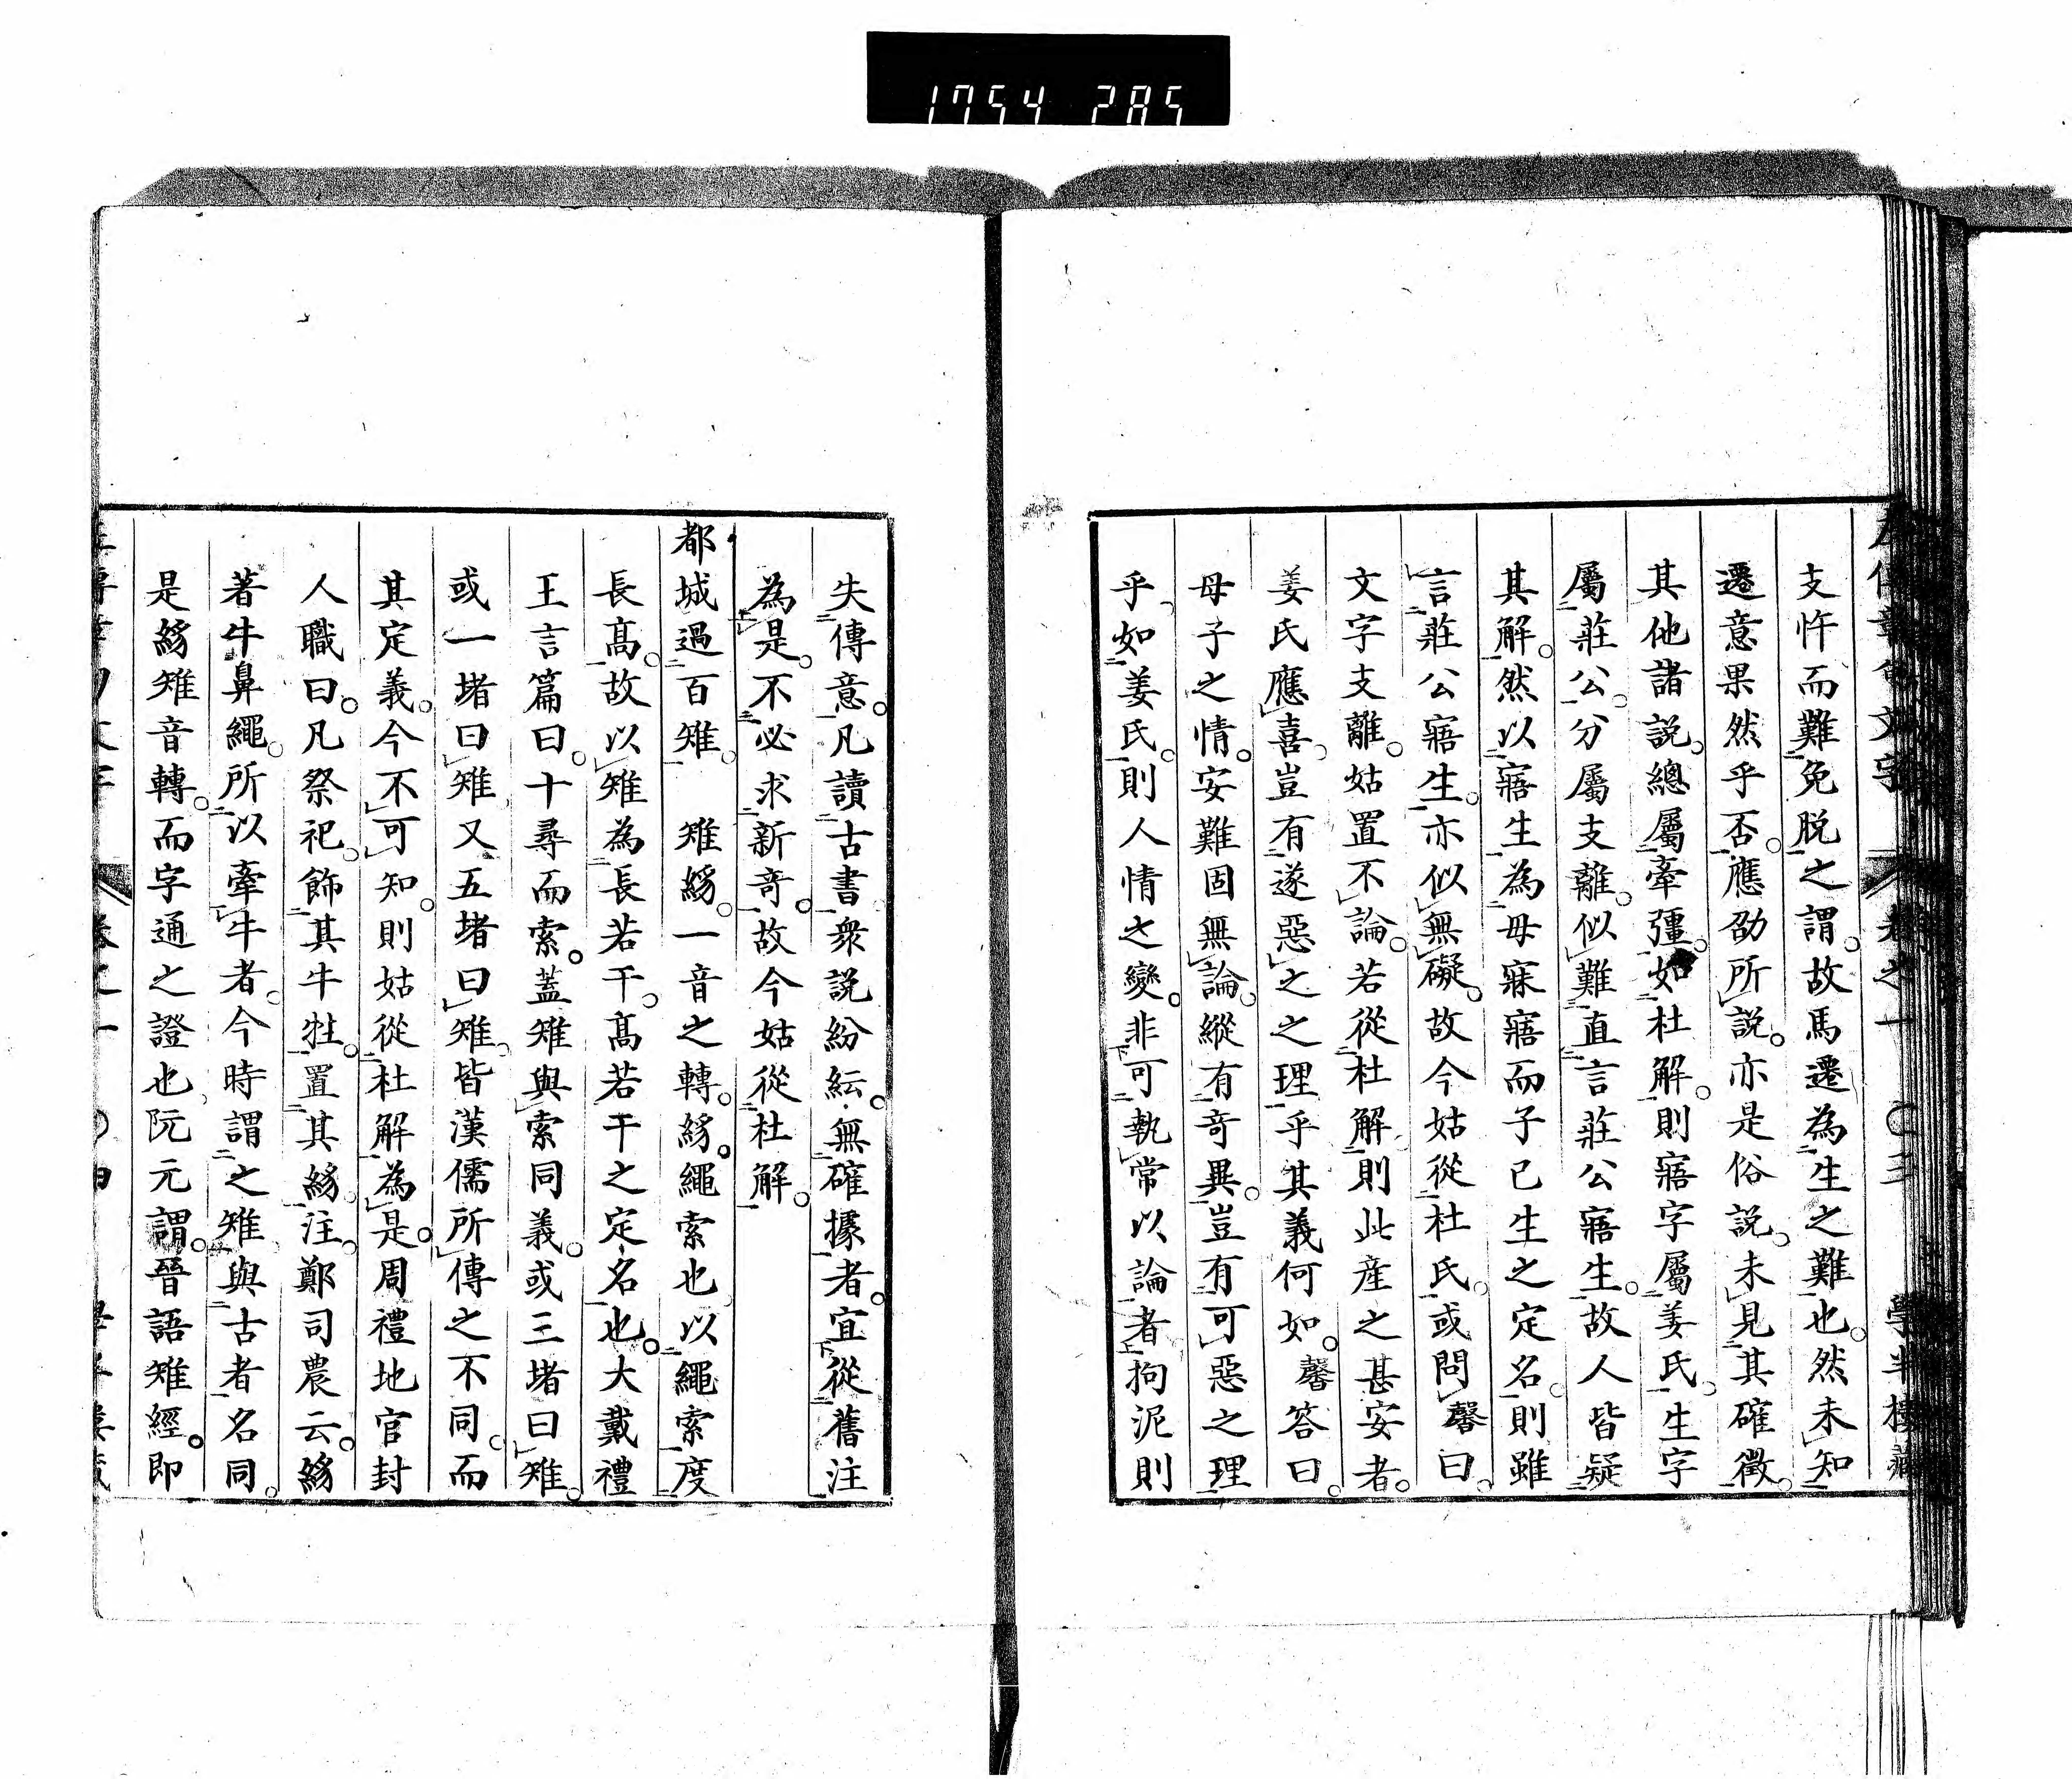 1754 285
左傳章句文字 卷之一 〇三 學半樓藏
支忤而難免脱之謂。故馬遷為生之難也。然未知
遷意果然乎否。應劭所説。亦是俗説。未見其確徵。
其他諸説。總屬牽彊。如杜解。則寤字屬姜氏。生字
屬莊公。分屬支離。似難直言莊公寤生。故人皆疑
其解。然以寤生為母寐寤而子已生之定名。則雖
言莊公寤生。亦似無礙。故今姑從杜氏。或問馨曰。
文字支離。姑置不論。若從杜解。則此産之甚安者。
姜氏應喜。豈有遂惡之之理乎其義何如。馨答曰。
母子之情。安難固無論。縱有奇異。豈有可惡之理
乎。如姜氏。則人情之變。非可執常以論者拘泥則
失傳意。凡讀古書衆説紛紜。無確據者。宜從舊注
為是。不必求新奇。故今姑從杜解。
都城過百雉。 雉綈。一音之轉。綈。繩索也。以繩索度
長髙。故以雉為長若干。髙若干之定名也。大戴禮
王言篇曰。十尋而索。蓋雉與索同義。或三堵曰雉。
或一堵曰雉。又五堵曰雉。皆漢儒所傳之不同。而
其定義。今不可知。則姑從杜解為是。周禮地官封
人職曰。凡祭祀。飾其牛牲。置其綈。注。鄭司農云。綈
著牛鼻繩。所以牽牛者。今時謂之雉。與古者名同。
是綈雉音轉。而字通之證也。阮元謂。晉語雉經。即